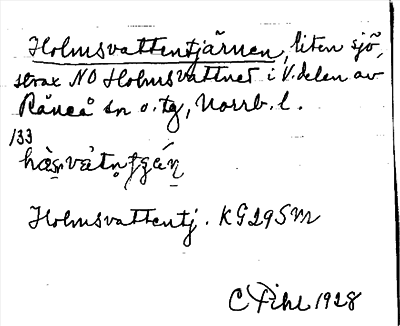 Holmsvattentjärnen, liten sjö,
strax NO Holmsvattnet i V. delen av
Råneå sn o. tg, Norrb. l.
133
Holmsvattentj. KG29SM
C Pihl 1928